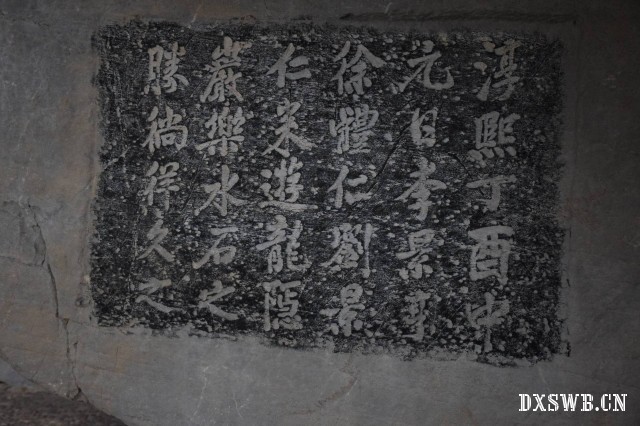 淳熙丁酉中
元日李景亨
徐體仁劉景
仁来遊龍隱
巖樂水石之
勝徜徉久之
DXSWB.CN